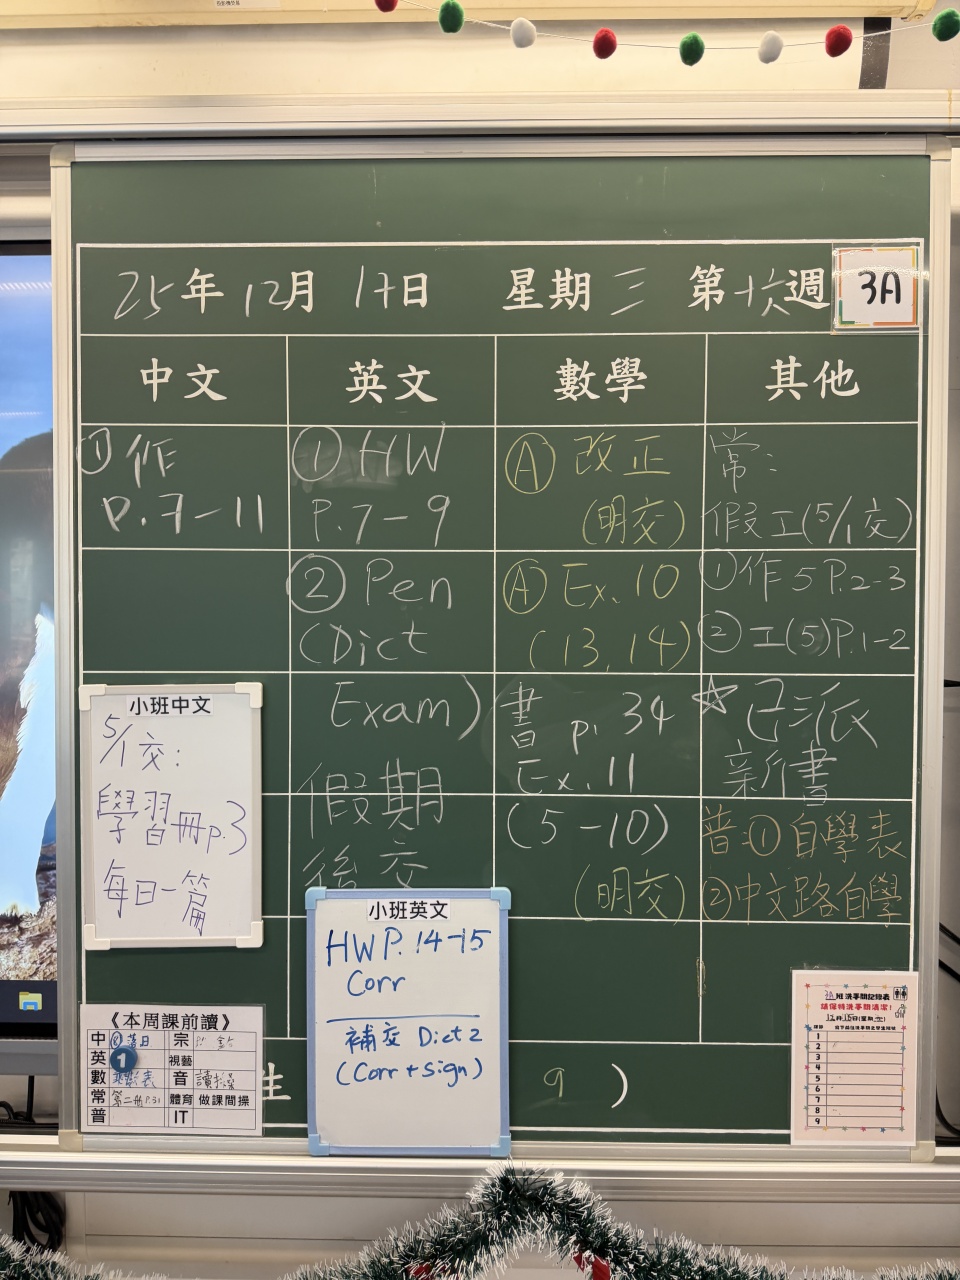 25年12月17日 星期三 第十六週 3A
中文 英文 數學 其他
①作
P.7-11
①HW
P.7-9
②Pen
(Dict
Exam)
假期
後交
Ⓐ改正
(明交)
Ⓐ Ex.10
(13,14)
書 p.34
Ex.11
(5-10)
(明交)
常:
假工(5/1交)
①作5 P.2-3
②工(5)P.1-2
☆已派
新書
普:①自學表
②中文路自學
小班中文
5/1交:
學習冊p.3
每日一篇
小班英文
HW P.14-15
Corr
補交 Dict 2
(Corr + sign)
生
9 )
《本周課前讀》
中 宗
英 1 視藝
數 乘數表 音 讀
常 第二冊P.31 體育 做課間操
普 IT
3A班洗手間記錄表
請保持洗手間清潔!
12月15日(星期
1
2
3
4
5
6
7
8
9